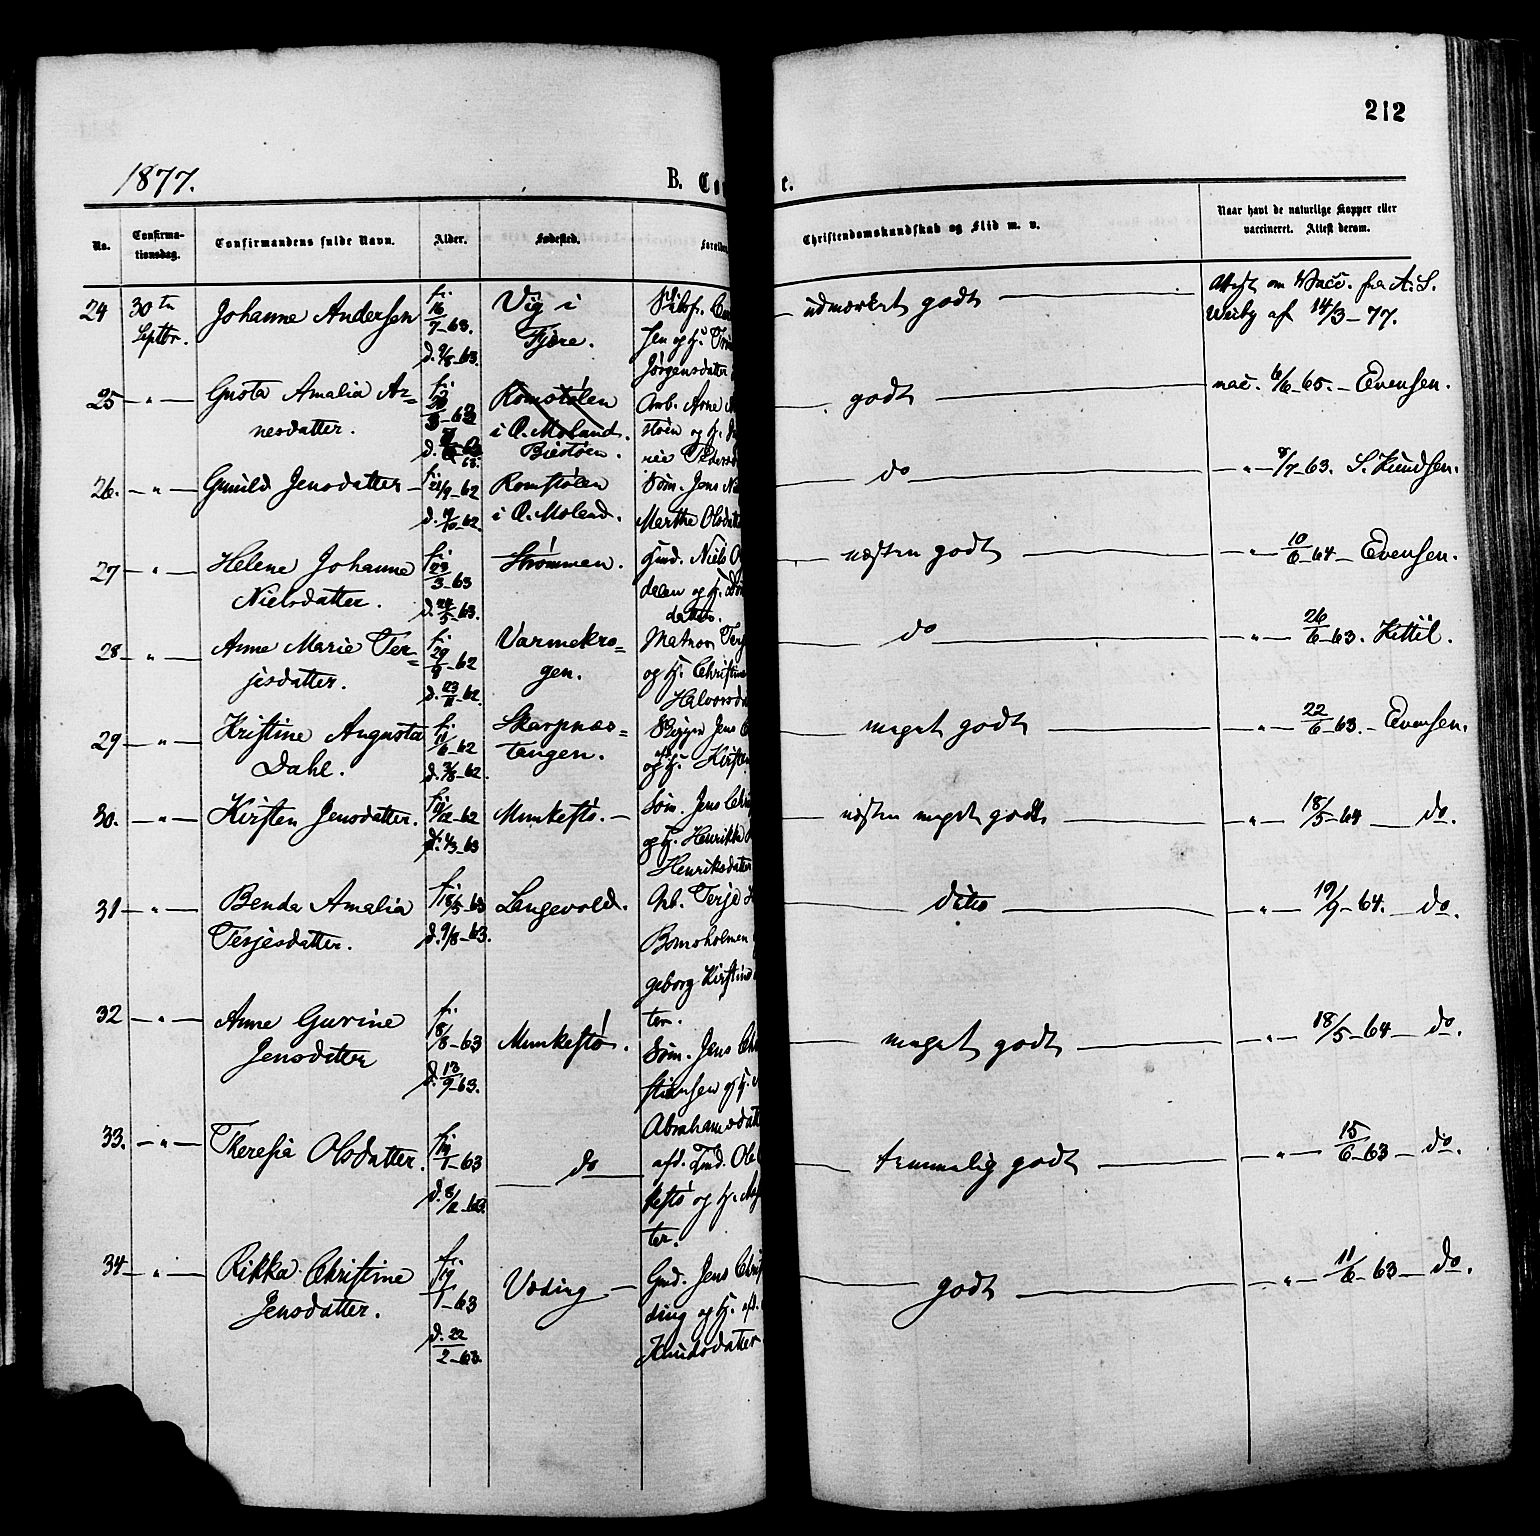 212
1877.
B. Co
t.
No.
Confirma-
tionsdag.
Confirmandens fulde Navn.
Alder.
Fødested.
Forældre
Christendomskundskab og Flid m. v.
Naar havt de naturlige Kopper eller
vaccineret. Attest derom.
24 30te Septbr. Johanne Andersen f. 16/7-63. d. 9/8-63. Vig i Fjære.
Jørgensdatter
udmærket godt
Attest om Vacc. fra A. S.
Werby af 14/3-77.
25 - " - Gusta Amalia Ar=
nesdatter.
Romstølen
i Ø. Moland.
Biestøen.
Arb. Arne
støen og H.
godt
vac. 6/6-65. - Evensen.
26. - " - Gunild Jensdatter f. 21/9-62
Romstølen
i Ø. Moland.
Søm. Jens
Marthe Olsdat
do
" 8/7-63. S. Knudsen.
27 - " - Helene Johanne
Nielsdatter.
f. 23/3-63
d. 24/5-63.
Strømmen.
Gmd. Niels
datter.
næsten godt
" - 10/6-64 - Evensen.
28 - " - Anne Marie Ter=
jesdatter.
f. 29/9-62
d. 23/11-62.
Varmekro=
gen.
Matros Terj
og H. Christine
Halvorsda
do
" - 26/6-63. Kettil.
29 - " - Kristine Augusta
Dahl.
f. 11/6-62
d. 3/8-62.
Skarpnæs=
tangen.
Jens
og H. Kirsten
meget godt
" - 22/6-63. - Evensen.
30. - " - Kirsten Jensdatter.
f. 19/12-62
d. 4/3-63
Munkefss. -
Søm. Jens Chri
og H. Henrikka
Henriksdatter
næsten meget godt
" - 18/5-64 - do.
31 - " - Benda Amalia
Terjesdatter.
f. 18/5-63
d. 9/8-63.
Langevold.
Arb. Terje
Bomsholmen
geborg Kirstine
ter.
ditto
" - 19/9-64. - do.
32 - " - Anne Gurine
Jensdatter
f. 18/8-63
d. 13/9-63.
Munkestø.
Søm. Jens Chri
stiansen og H.
Abrahamsdatt
meget godt
" - 18/5-64 - do.
33. - " - Theresia Olsdatter.
f. 19/1-63
do
afd. Gmd. Ole
kestø og H.
ter.
temmelig godt
" - 15/6-63 - do.
34 - " - Rikka Christine
Jensdatter.
f. 19/1-63
d. 22/2-63.
Vøding -
Gmd. Jens Chri
ding og H.
Knudsdatter
godt
" - 11/6-63 - do.